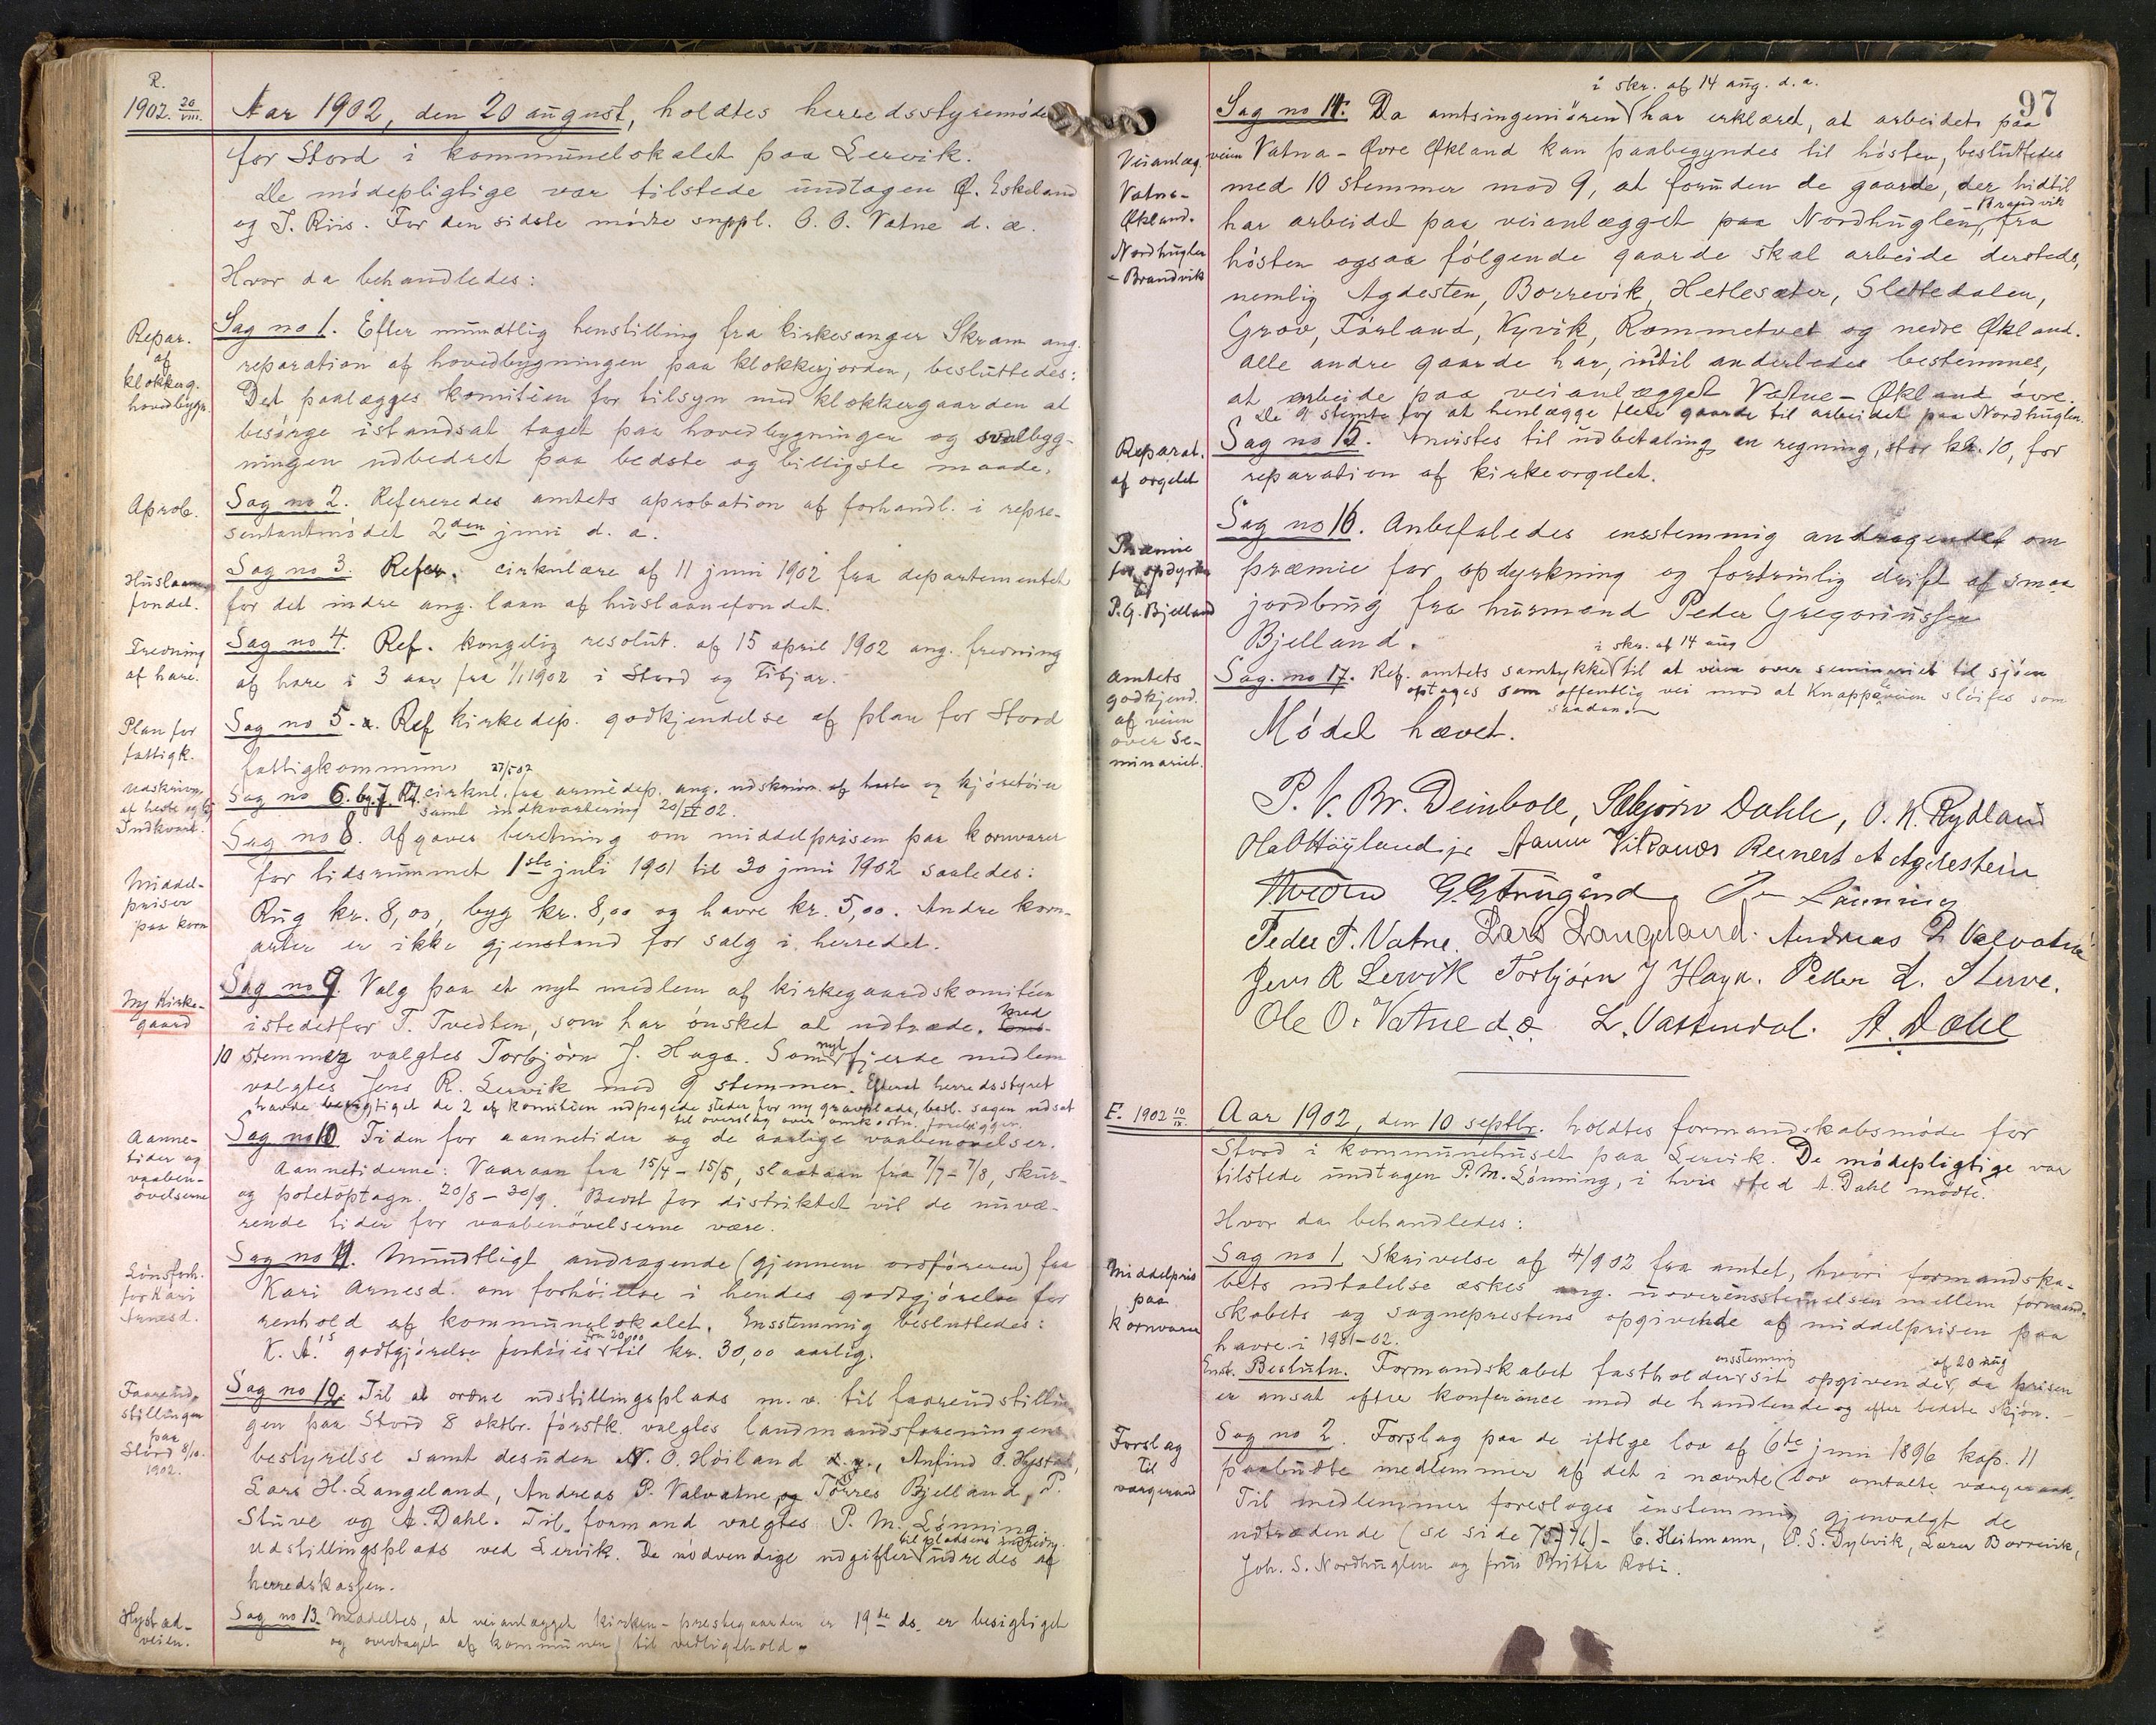 R.
1902. 20/VIII.
Aar 1902, den 20 august, holdtes herredsstyremøde
for Stord i kommunelokalet paa Lervik.
De mødepligtige var tilstede undtagen Ø. Eskeland
og J. Riis. For den sidste mødte suppl. O. O. Vatne d. æ.
Hvor da behandledes:
Repar.
af
klokkerg.
hovedbygn.
Sag no 1. Efter mundtlig henstilling fra kirkesanger Skram ang.
reparation af hovedbygningen paa klokkerjorden, besluttedes:
Det paalægges komitéen for tilsyn med klokkergaarden at
besørge istandsat taget paa hovedbygningen og svalbygg-
ningen udbedret paa bedste og billigste maade.
Aprob.
Sag no 2. Refereredes amtets aprobation af forhandl. i repre-
sentantmødet 2den juni d. a.
Huslaane
fondet.
Sag no 3. Refer. cirkulære af 11 juni 1902 fra departementet
for det indre ang. laan af huslaanefondet.
Fredning
af hare.
Sag no 4. Ref. kongelig resolut. af 15 april 1902 ang. fredning
af hare i 3 aar fra 1/1 1902 i Stord og Fitjar.
Plan for
fattigk.
Sag no 5. Ref kirkedep. godkjendelse af plan for Stord
fattigkommune
Udskrivn.
af heste og kj
Indkvart.
27/5 02
Sag no 6. og 7. Ref. cirkul. fra armédep. ang. udskrivn. af heste og kjøretøier
samt indkvartering 20/VI 02.
Middel-
priser
paa korn
Sag no 8. Afgaves beretning om middelprisen paa kornvarer
for tidsrummet 1ste juli 1901 til 30 juni 1902 saaledes:
Rug kr. 8,00, byg kr. 8,00 og havre kr. 5,00. Andre korn-
arter er ikke gjenstand for salg i herredet.
Ny Kirke-
gaard
Sag no 9. Valg paa et nyt medlem af kirkegaardskomitéen
istedetfor T. Tvedten, som har ønsket at udtræde. Med
10 stemmer valgtes Torbjørn J. Haga. Som nyt fjerde medlem
valgtes Jens R. Lervik med 9 stemmer. Efterat herredsstyret
havde besigtiget de 2 af komitéen udpegede steder for ny gravplads, besl. sagen udsat
til overslag over omkostn. foreligger.
Aanne-
tider og
vaaben-
øvelserne
Sag no 10 Tiden for aannetider og de aarlige vaabenøvelser.
Aannetiderne: Vaaraan fra 15/4 - 15/5, slaataan fra 7/7 - 7/8, skur-
og potetoptagn. 20/8 - 30/9. Bedst for distriktet vil de nuvæ-
rende tider for vaabenøvelserne være.
Lønsforh.
for Kari
Arnesd.
Sag no 11. Mundtligt andragende (gjennem ordføreren) fra
Kari Arnesd. om forhøielse i hendes godtgjørelse for
renhold af kommunelokalet. Ensstemmig besluttedes:
K. A.'s godtgjørelse forhøies fra 20,00 til kr. 30,00 aarlig.
Faareud-
stillingen
paa
Stord 8/10.
1902.
Sag no 12. Til at ordne udstillingsplads m. v. til faareudstillin
gen paa Stord 8 oktbr. førstk. valgtes landmandsforeningens
bestyrelse samt desuden N. O. Høiland d. y., Anfind O. Hystad,
Lars H. Langeland, Andreas P. Valvatne, Tørres Bjelland, P.
Stuve og A. Dahl. Til formand valgtes P. M. Lønning
Udstillingsplads ved Lervik. De nødvendige udgifter til pladsens indredn. udredes af
herredskassen.
Hystad-
veien.
Sag no 13. Meddeltes, at veianlægget kirken - prestegaarden er 19de ds. er besigtiget
og overtaget af kommunen til vedligehold.
97
i skr. af 14 aug. d. a.
Sag no 14. Da amtsingeniøren har erklæret, at arbeidet paa
Veianlæg.
Vatna-
Økland.
Nordhuglen
- Brandvik
veien Vatna - Øvre Økland kan paabegyndes til høsten, besluttedes
med 10 stemmer mod 9, at foruden de gaarde, der hidtil
har arbeidet paa veianlægget paa Nordhuglen, Brandvik fra
høsten ogsaa følgende gaarde skal arbeide dersteds,
nemlig Agdesten, Borrevik, Hetlesæter, Slettedalen,
Grov, Førland, Kyvik, Rommetvet og nedre Økland.
Alle andre gaarde har, indtil anderledes bestemmes,
at arbeide paa veianlægget Vatne - Økland øvre.
De 9 stemte for at henlægge flere gaarde til arbeidet paa Nordhuglen.
Reparat.
af orgelet
Sag no 15. Anvistes til udbetaling en regning, stor kr. 10, for
reparation af kirkeorgelet.
Præmie
for opdyrkn
af
P. G. Bjelland
Sag no 16. Anbefaledes ensstemmig andragendet om
præmie for opdyrkning og fortrinlig drift af smaa
jordbrug fra husmand Peder Gregoriussen
Bjelland.
Amtets
godkjend.
af veien
over Se-
minariet.
i skr. af 14 aug
Sag. no 17. Ref. amtets samtykke til at veien over seminariet til sjøen
optages som offentlig vei mod at Knappeveien sløifes som
saadan.
Mødet hævet.
P. V. Br. Deinboll, Sæbjørn Dahle, O. K. Rydland
Ola O Høylandijr Hannes Vikanes Reinert A Agdestein
Tvedten G. G Trugånd P. Lønning
Peder T. Vatne. Lars Langeland. Andreas P. Valvatne
Jens R Lervik Torbjørn J Haga. Peder L. Sterve.
Ole O. Vatne d. æ. L. Vattendal. A. Dahl
F. 1902 10/IX.
Aar 1902, den 10 septbr. holdtes formandskabsmøde for
Stord i kommunehuset paa Lervik. De mødepligtige var
tilstede undtagen P. M. Lønning, i hvis sted A. Dahl mødte.
Hvor da behandledes:
Middelpris
paa
kornvarer
Sag no 1. Skrivelse af 4/9 02 fra amtet, hvori formandska-
bets udtalelse æskes ang. uoverensstemmelsen mellem formand-
skabets og sogneprestens opgivende af middelprisen paa
havre i 1901-02.
Enst. Beslutn. Formandskabet fastholder ensstemmig sit opgivende af 20 aug, da prisen
er ansat efter konferance med de handlende og efter bedste skjøn. -
Forslag
til
vergeraad
Sag no 2. Forslag paa de ifølge lov af 6te juni 1896 kap. 11
paabudte medlemmer af det i nævnte lov omtalte vergeraad.
Til medlemmer foreslages enstemmig gjenvalgt de
udtrædende (se side 75 76) - C. Heitmann, P. S. Dybvik, Lærer Borrevik,
Joh. S. Nordhuglen og fru Britha Robi.